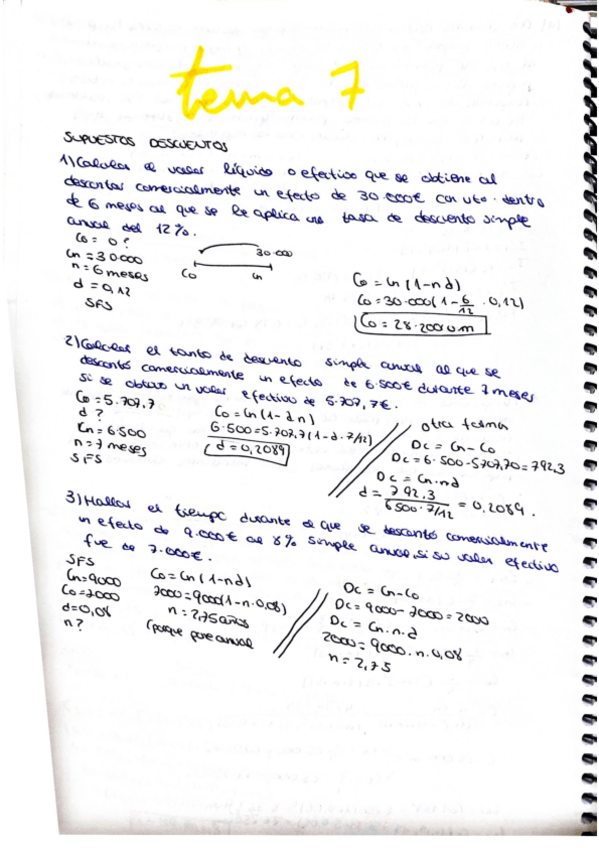 tema 7
SUPUESTOS DESCUENTOS
1) Calcular el valor líquido o efectivo que se obtiene al
descontar comercialmente un efecto de 30.000€ con vto. dentro
de 6 meses al que se le aplica una tasa de descuento simple
anual del 12%.
Co = 0 ?
Cn = 30.000
n = 6 meses
d = 0,12
SFS
30.000
Co Cn
Co = Cn (1-nd)
Co = 30.000 (1 - 6/12 . 0,12)
Co = 28.200 u.m
2) Calcular el tanto de descuento simple anual al que se
descontó comercialmente un efecto de 6.500€ durante 7 meses
si se obtuvo un valor efectivo de 5.707,7€.
Co = 5.707,7
d ?
Cn = 6.500
n = 7 meses
SFS
Co = Cn (1-dn)
6.500 = 5.707,7 (1-d. 7/12)
d = 0,2089
otra forma
Dc = Cn - Co
Dc = 6.500 - 5707,70 = 792,3
Dc = Cn.nd
d = 792,3 / 6500.7/12 = 0,2089.
3) Hallar el tiempo durante el que se descontó comercialmente
un efecto de 9.000€ al 8% simple anual, si su valor efectivo
fue de 7.000€.
SFS
Cn = 9000
Co = 7000
d = 0,08
n ?
Co = Cn (1-nd)
7000 = 9000 (1-n.0,08)
n = 2,75 años
(porque pone anual
Dc = Cn - Co
Dc = 9000 - 7000 = 2000
Dc = Cn.n.d
2000 = 9000.n.0,08
n = 2,75